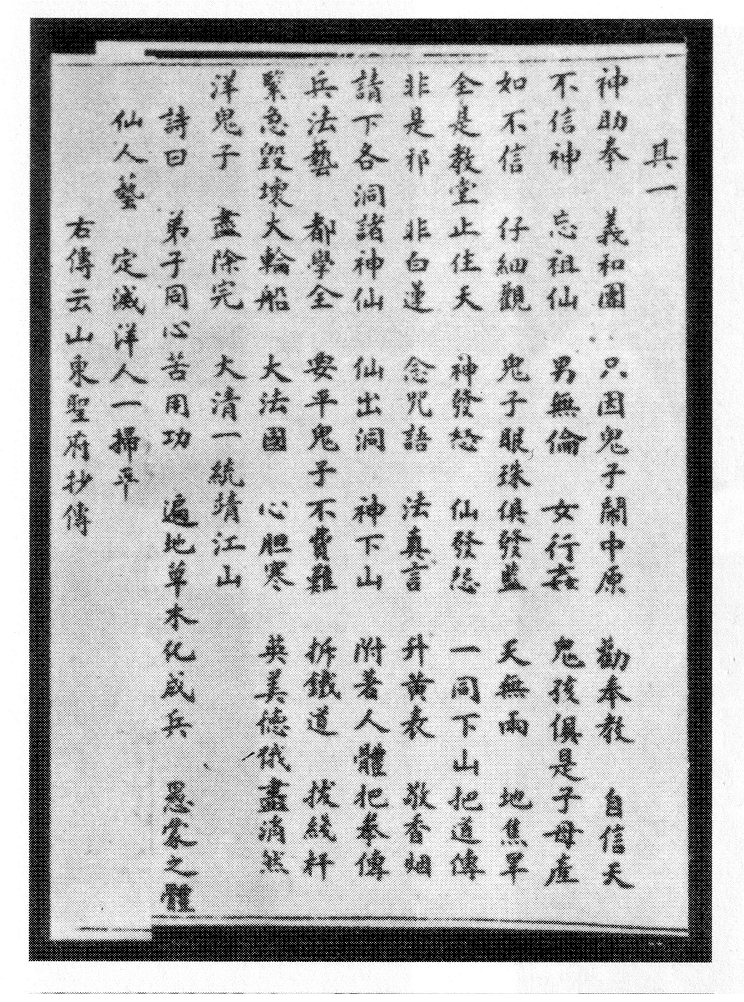 其一
神助奉 義和團 只因鬼子鬧中原 勸奉教 自信天
不信神 忘祖仙 男無倫 女行姦 鬼孩俱是子母產
如不信 仔細觀 鬼子眼珠俱發藍 天無雨 地焦旱
全是教堂止住天 神發怒 仙發怨 一同下山把道傳
非是邪 非白蓮 念咒語 法真言 升黃表 敬香烟
請下各洞諸神仙 仙出洞 神下山 附著人體把拳傳
兵法藝 都學全 要平鬼子不費難 拆鐵道 拔綫杆
緊急毀壞大輪船 大法國 心胆寒 英美德俄盡消然
洋鬼子 盡除完 大清一統靖江山
詩曰 弟子同心苦用功 遍地草木化成兵 愚蒙之體
仙人藝 定滅洋人一掃平
右傳云山東聖府抄傳